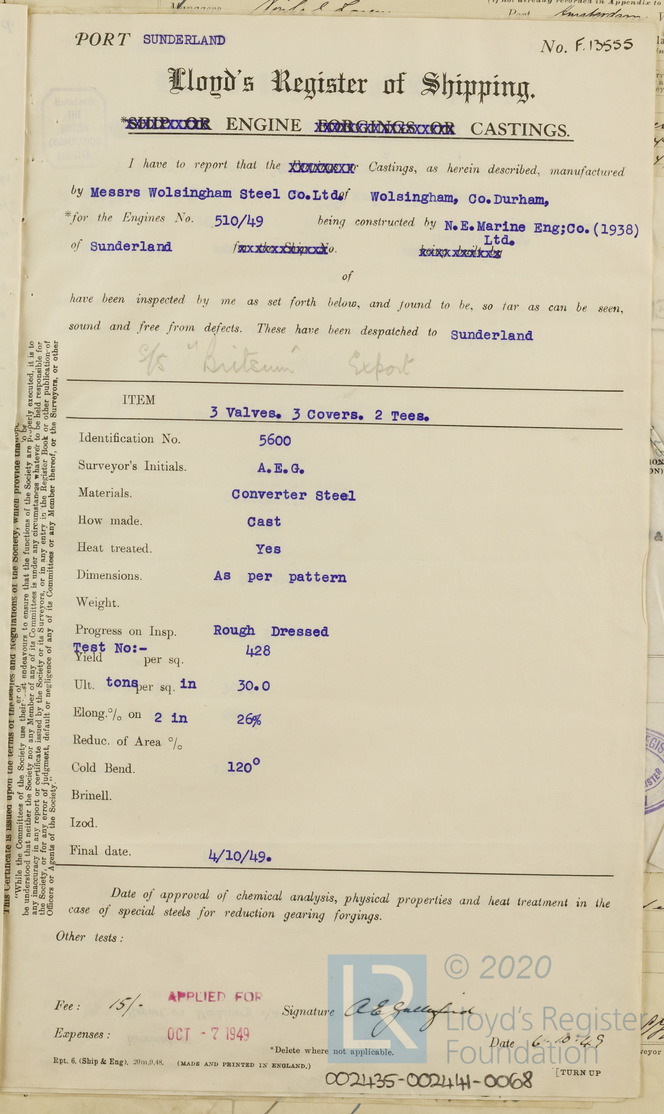 PORT SUNDERLAND
No. F.13555
Lloyd's Register of Shipping.
*SHIP OR ENGINE FORGINGS OR CASTINGS.
I have to report that the Castings, as herein described, manufactured
by Messrs Wolsingham Steel Co.Ltd. of Wolsingham, Co.Durham,
*for the Engines No. 510/49 being constructed by N.E.Marine Eng;Co.(1938)
Ltd.
of Sunderland
of
have been inspected by me as set forth below, and found to be, so far as can be seen,
sound and free from defects. These have been despatched to Sunderland
Export
ITEM
3 Valves. 3 Covers. 2 Tees.
Identification No. 5600
Surveyor's Initials. A.E.G.
Materials. Converter Steel
How made. Cast
Heat treated. Yes
Dimensions. As per pattern
Weight.
Progress on Insp. Rough Dressed
Test No:- 428
Yield per sq.
Ult. tons per sq. in 30.0
Elong.% on 2 in 26%
Reduc. of Area %
Cold Bend. 120°
Brinell.
Izod.
Final date. 4/10/49.
Date of approval of chemical analysis, physical properties and heat treatment in the
case of special steels for reduction gearing forgings.
Other tests :
Fee : 15/- APPLIED FOR Signature
Expenses : OCT -7 1949 Date 6-10-49
*Delete where not applicable.
Rpt. 6. (Ship & Eng). 20m,9,48. (MADE AND PRINTED IN ENGLAND.)
[TURN UP
002435-002441-0068
LR © 2020
Lloyd's Register
Foundation
This Certificate is issued upon the terms of the Rules and Regulations of the Society, which provide that:—
"While the Committees of the Society use their best endeavours to ensure that the functions of the Society are properly executed, it is to
be understood that neither the Society nor any Member of any of its Committees is under any circumstances whatever to be held responsible for
any inaccuracy in any report or certificate issued by the Society or its Surveyors, or in any entry in the Register Book or other publication of
the Society, or for any error of judgment, default or negligence of any of its Committees or any Member thereof, or the Surveyors, or other
Officers or Agents of the Society."